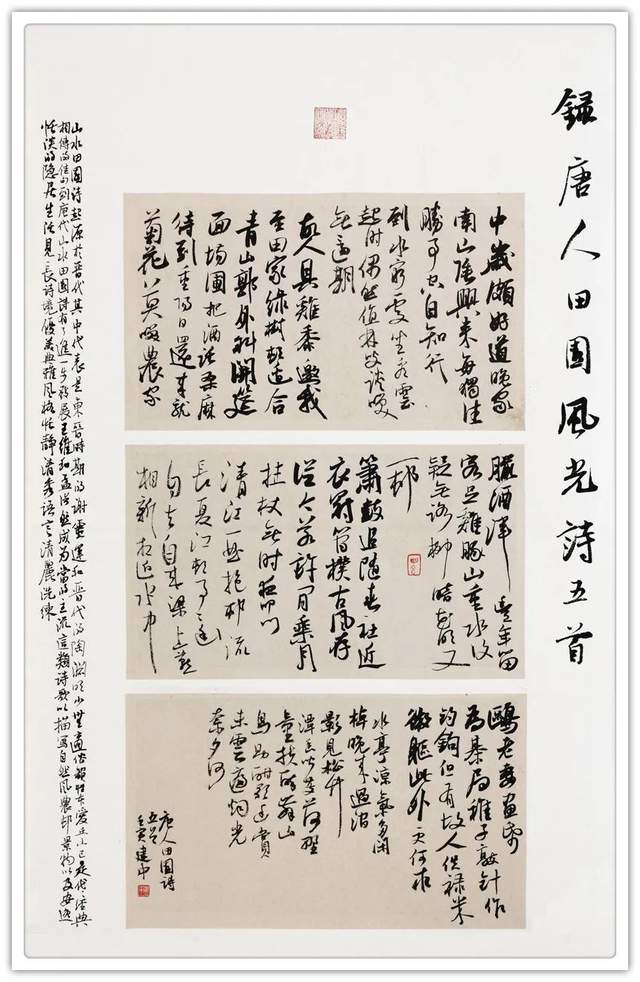 錄唐人田園風光詩五首
中歲頗好道晚家
南山陲興來每獨往
勝事空自知行
到水窮處坐看雲
起時偶然值林叟談笑
無還期
故人具雞黍邀我
至田家綠樹邨邊合
青山郭外斜開筵
面場圃把酒話桑麻
待到重陽日還來就
菊花莫笑農家
臘酒渾豐年留
客足雞豚山重水復
疑無路柳暗花明又
一邨
簫鼓追隨春社近
衣冠簡樸古風存
從今若許閒乘月
拄杖無時夜叩門
清江一曲抱邨流
長夏江邨事事幽
自去自來梁上燕
相親相近水中
鷗老妻畫紙
為棊局稚子敲針作
釣鉤但有故人供祿米
微軀此外更何求
水亭涼氣多閑
棹晚來過澗
影見松竹
潭香聞芰荷野
童扶醉舞山
鳥助酣歌幽賞
未雲遍煙光
奈夕何
唐人田園詩
五首
壬寅建中
山水田園詩起源於晉代其中代表是東晉時期的謝靈運和晉代的陶淵明少無適俗韻性本愛丘山已是代代經典
相傳的佳句到唐代山水田園詩有了進一步發展王維和孟浩然成為當時的主流這類詩歌以描寫自然風農邨景物以及安逸
恬淡的隱居生活見長詩境優美典雅風格恬靜清秀語言清麗洗練